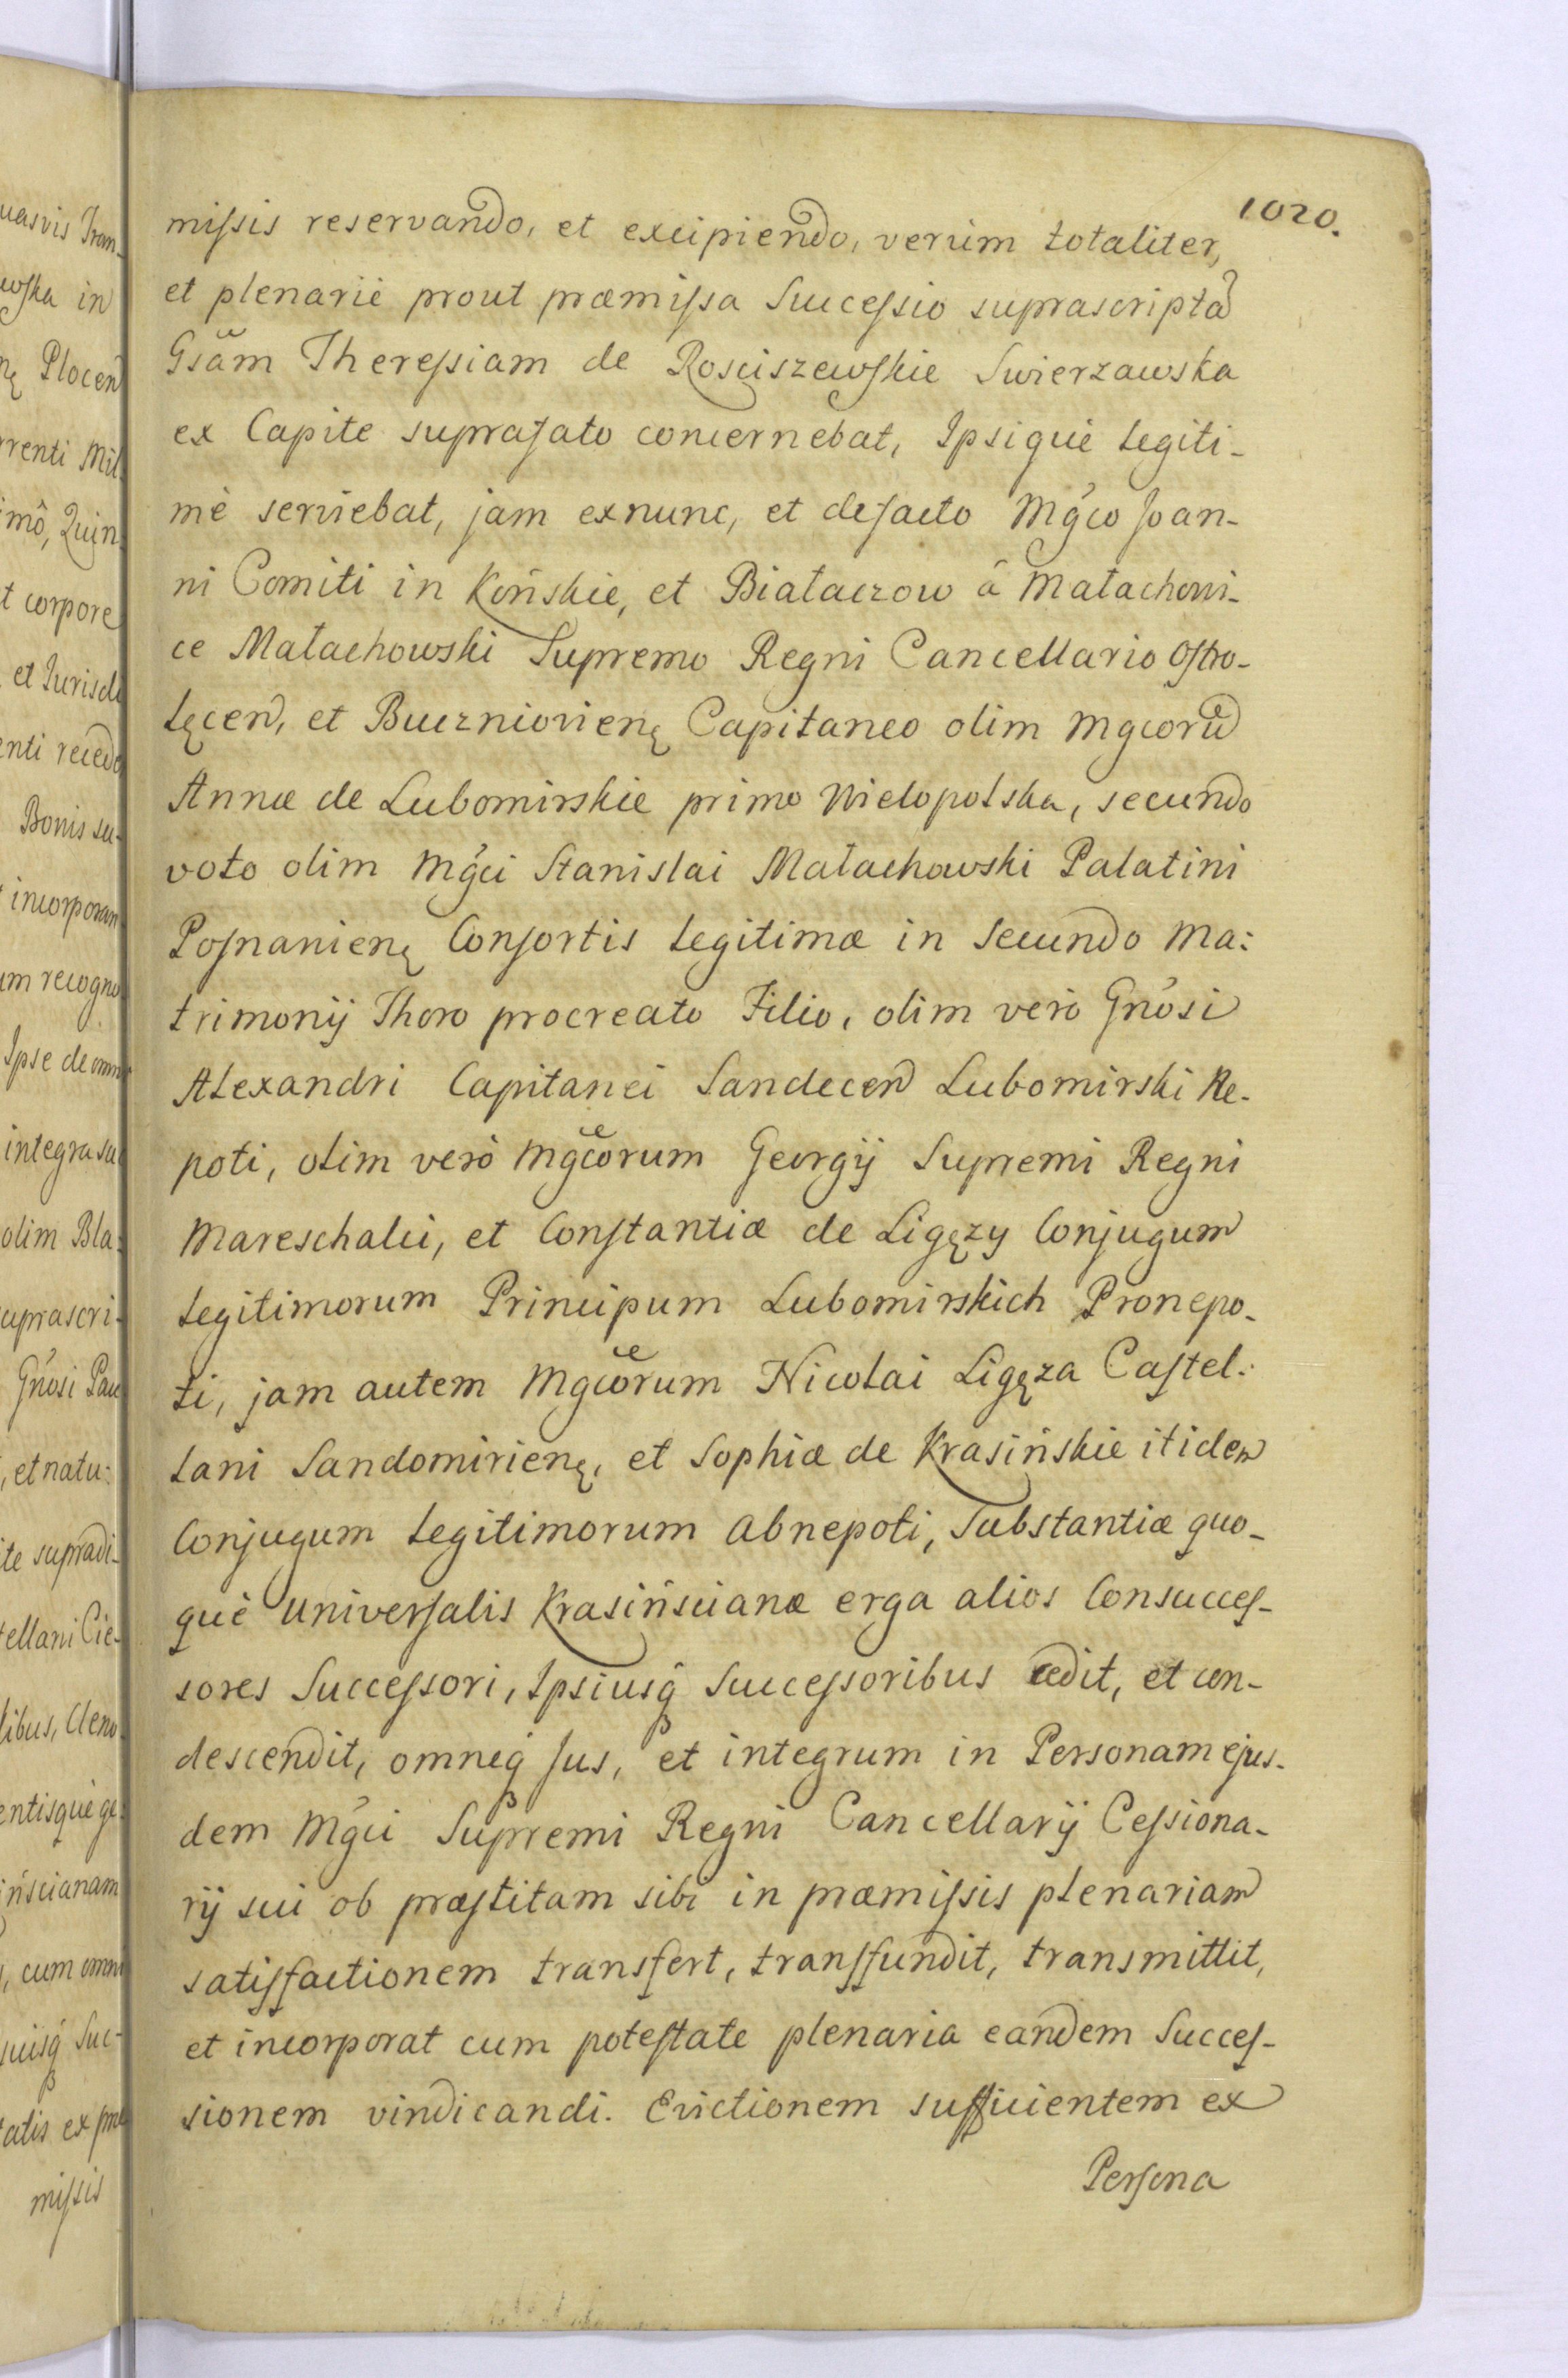 1020.
miſsis reservando, et excipiendo, verùm totaliter,
et plenariè prout præmiſsa Succeſsio suprascriptã
Gsãm Thereſsiam de Rosciszewſkie Swierzawska
ex Capite suprafato concernebat, Ipsique legiti-
mè serviebat, jam exnunc, et defacto Mg̃co Joan-
ni Comiti in Końskie, et Białaczow â Małachowi-
ce Małachowski Supremo Regni Cancellario Oſtro-
lęcen, et Buezniovienę Capitaneo olim Mgcorũ
Annæ de Lubomirskie primo Wielopolska, secundo
voto olim Mg̃ci Stanislai Małachowski Palatini
Poſnanienę Conſortis legitimæ in Secundo Ma:
trimonij Thoro procreato Filio, olim verò Gnõsi
Alexandri Capitanei Sandecen Lubomirski Ne-
poti, olim verò Mgcõrum Georgij Supremi Regni
Mareschalci, et Conſtantiæ de Ligęzy Conjugum
legitimorum Principum Lubomirskich Pronepo-
ti, jam autem Mgcõrum Nicolai Ligęza Caſtel:
lani Sandomirienę, et Sophiæ de Krasińskie itidem
Conjugum legitimorum Abnepoti, Substantiæ quo-
què Univerſalis Krasińscianæ erga alios Consucceſ-
sores Succeſsori, Ipsiusq̃ Succeſsoribus cedit, et con-
descendit, omneq̃ Jus, et integrum in Personam ejus-
dem Mg̃ci Supremi Regni Cancellarij Ceſsiona-
rij sui ob præſtitam sibi in præmiſsis plenariam
satiſfactionem transfert, tranſfundit, transmittit,
et incorporat cum poteſtate plenaria eandem Succeſ-
sionem vindicandi. Evictionem sufficientem ex
Perſona